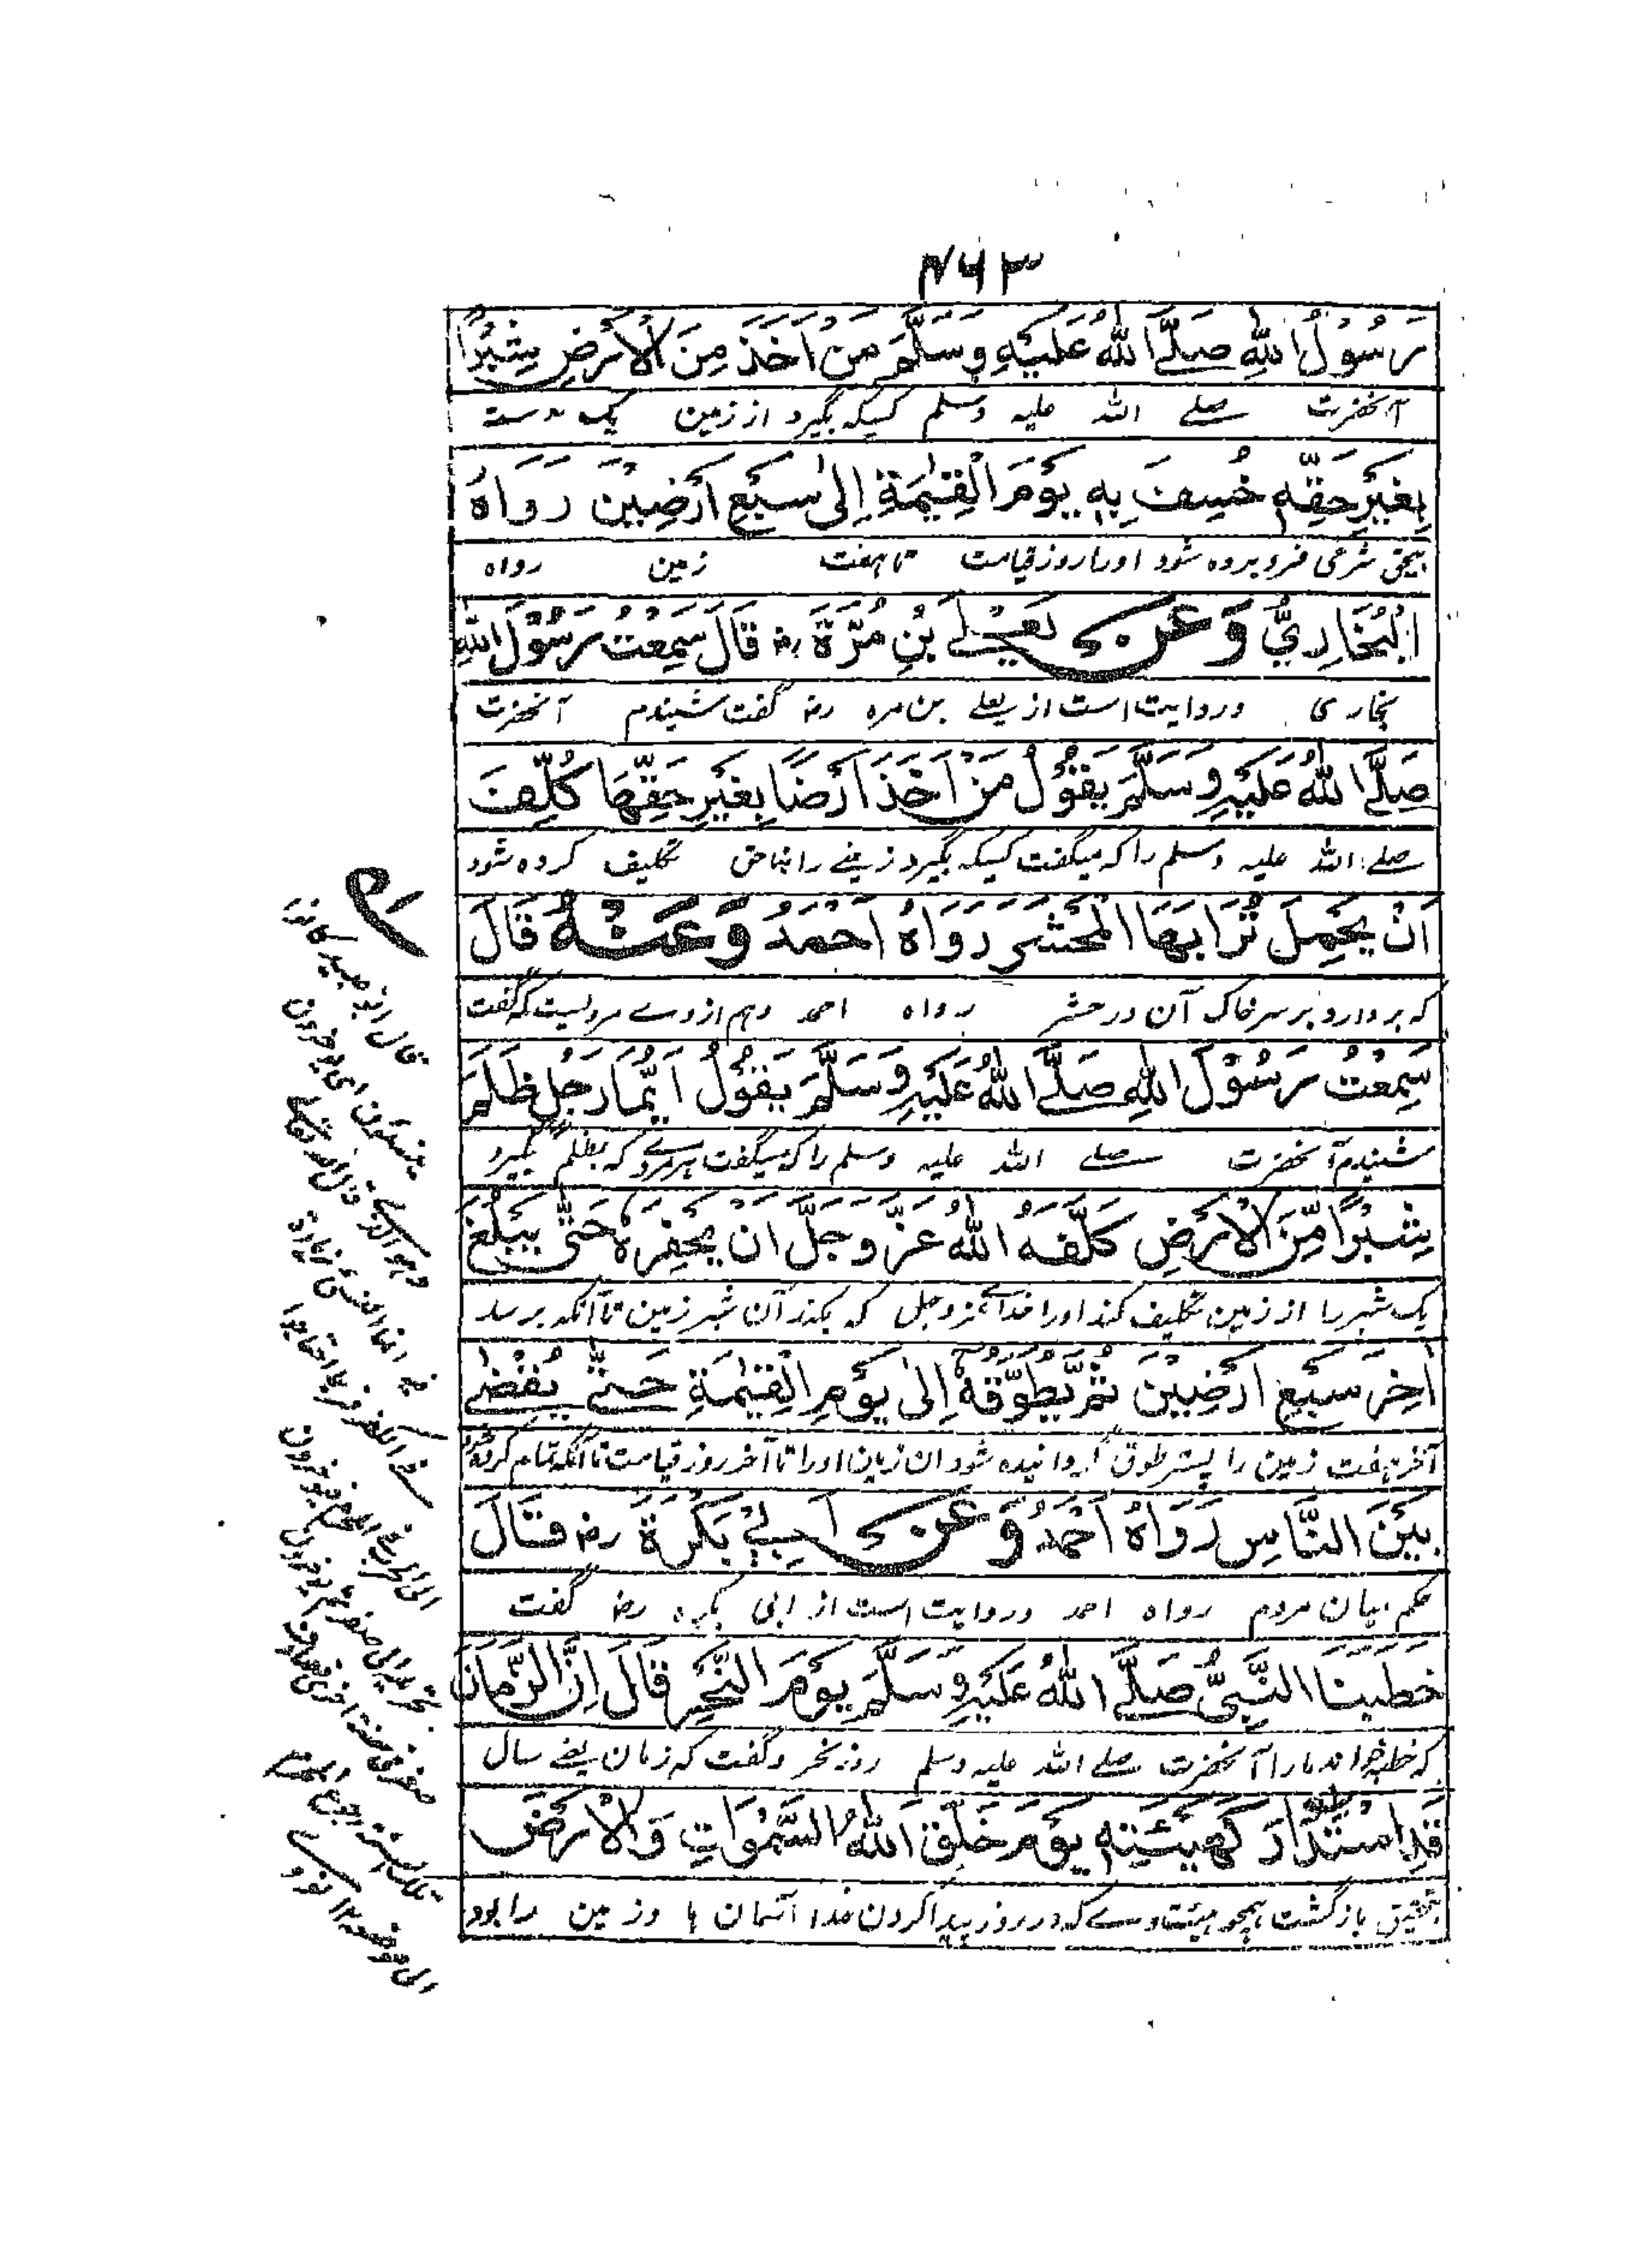 ۴۶۳
رَسُوْلُ اللهِ صَلَّے اللهُ عَلَيْهِ وَسَلَّمَ مَنْ اَخَذَ مِنَ الْاَرْضِ شِبْرًا
آنخضرت صلے الله علیه وسلم کسیکه بگیرد از زمین یک بدست
بِغَيْرِ حَقِّهٖ خُسِفَ بِهٖ يَوْمَ الْقِيٰمَةِ اِلٰى سَبْعِ اَرَضِيْنَ رَوَاهُ
بیحق شرعی فرو برده شود او را روز قیامت تا هفت زمین رواه
الْبُخَارِيُّ وَعَنْ يَعْلٰے بْنِ مُرَّةَ رض قَالَ سَمِعْتُ رَسُوْلَ اللهِ
بخاری و روایت است از یعلے بن مره رض گفت شنیدم آنخضرت
صَلَّے اللهُ عَلَيْهِ وَسَلَّمَ يَقُوْلُ مَنْ اَخَذَ اَرْضًا بِغَيْرِ حَقِّهَا كُلِّفَ
صلے الله علیه وسلم را که میگفت کسیکه بگیرد زمینے را بناحق تکلیف کرده شود
اَنْ يَّحْمِلَ تُرَابَهَا الْمَحْشَرَ رَوَاهُ اَحْمَدُ وَعَنْهُ قَالَ
که بردارد بر سر خاک آن در حشر رواه احمد وهم از وے مرویست که گفت
سَمِعْتُ رَسُوْلَ اللهِ صَلَّے اللهُ عَلَيْهِ وَسَلَّمَ يَقُوْلُ اَيُّمَا رَجُلٍ ظَلَمَ
شنیدم آنخضرت صلے الله علیه وسلم را که میگفت هر مردے که بظلم بگیرد
شِبْرًا مِّنَ الْاَرْضِ كَلَّفَهُ اللهُ عَزَّ وَجَلَّ اَنْ يَّحْفِرَهٗ حَتّٰى يَبْلُغَ
یک شبر را از زمین تکلیف کند او را خدائے عزوجل که بکند آن شبر زمین تا آنکه برسد
اٰخِرَ سَبْعِ اَرَضِيْنَ ثُمَّ يُطَوَّقُهٗ اِلٰى يَوْمِ الْقِيٰمَةِ حَتّٰے يُقْضٰے
آخر هفت زمین را پستر طوق گردانیده شود آن زمین او را تا آخر روز قیامت تا آنکه تمام کرده شود
بَيْنَ النَّاسِ رَوَاهُ اَحْمَدُ وَعَنْ اَبِيْ بَكْرَةَ رض قَالَ
حکم میان مردم رواه احمد و روایت است از ابی بکره رض گفت
خَطَبَنَا النَّبِيُّ صَلَّے اللهُ عَلَيْهِ وَسَلَّمَ يَوْمَ النَّحْرِ قَالَ اِنَّ الزَّمَانَ
که خطبه خواند ما را آنخضرت صلے الله علیه وسلم روز نحر و گفت که زمان یعنے سال
قَدِ اسْتَدَارَ كَهَيْئَتِهٖ يَوْمَ خَلَقَ اللهُ السَّمٰوَاتِ وَالْاَرْضَ
بتحقیق باز گشت همچو هیئت وے که در روز پیدا کردن خدا آسمان ها و زمین را بود